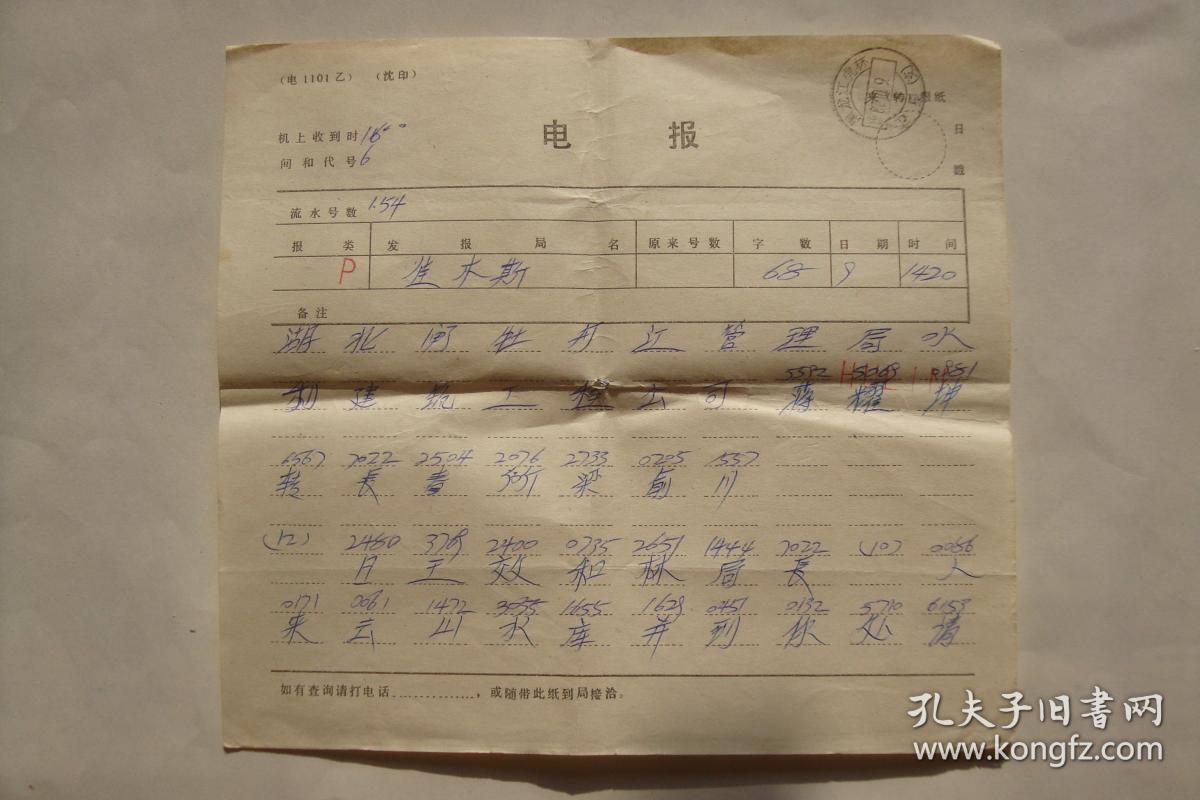 (电1101乙) (沈印)
来(转)报纸
机上收到时 16⁰⁰
间和代号 6
电 报
日
戳
流水号数 154
报类 发报局名 原来号数 字数 日期 时间
P 佳木斯 68 9 1420
备注
湖北 牡丹江管理局水
5592 5069 0981
利建筑工程公司蒋耀坤
6567 7022 2504 2076 2733 0205 1557
转长春 梁俞川
(12) 2480 3769 2400 0735 2651 1444 7022 (10) 0086
日王效和林局长 人
0171 0061 1472 3055 1655 1629 0451 0132 5710 6153
来云山水库并到你处请
如有查询请打电话..............,或随带此纸到局接洽。
孔夫子旧书网
www.kongfz.com